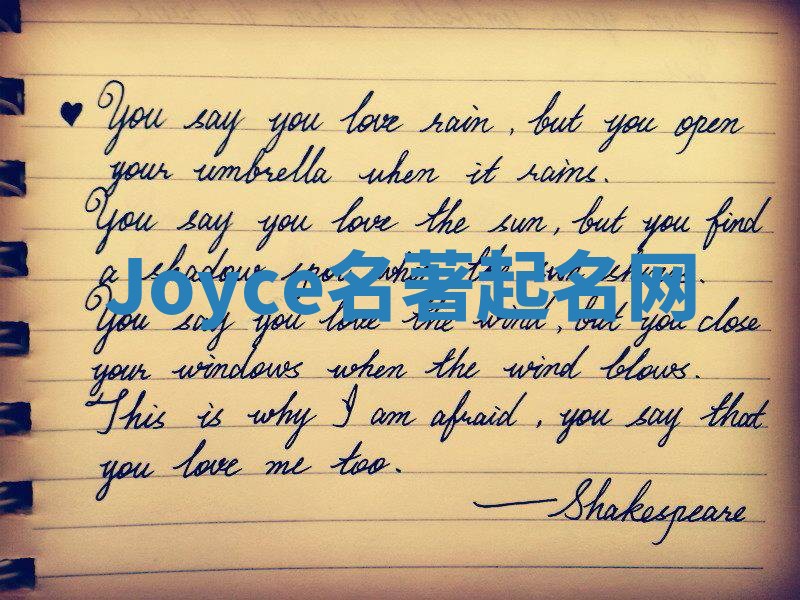 ♥ You say you love rain, but you open
your umbrella when it rains.
You say you love the sun, but you find
a shadow spot when the sun shines.
Joyce名著起名网
You say you love the wind, but you close
your windows when the wind blows.
This is why I am afraid, you say that
you love me too.
—Shakespeare